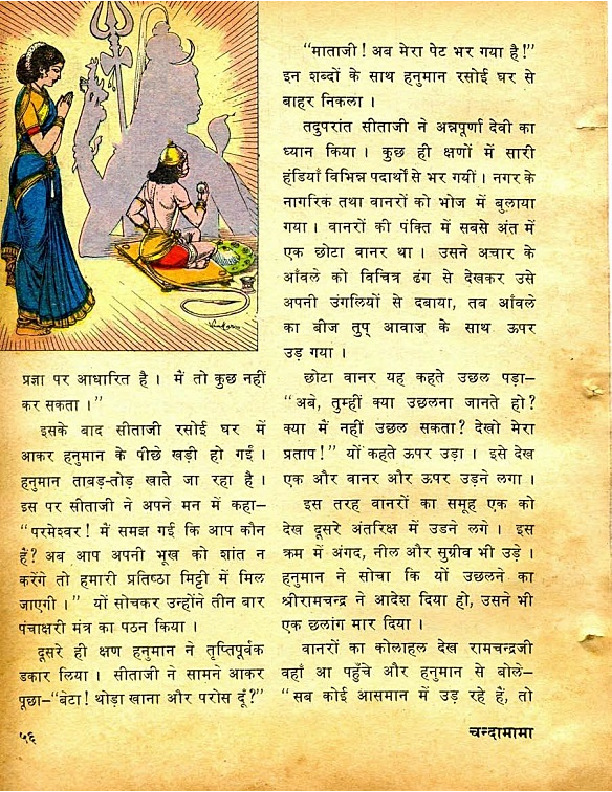 प्रज्ञा पर आधारित है । मैं तो कुछ नहीं
कर सकता ।”
इसके बाद सीताजी रसोई घर में
आकर हनुमान के पीछे खड़ी हो गईं ।
हनुमान ताबड़-तोड़ खाते जा रहा है ।
इस पर सीताजी ने अपने मन में कहा–
“परमेश्वर ! मैं समझ गई कि आप कौन
हैं? अब आप अपनी भूख को शांत न
करेंगे तो हमारी प्रतिष्ठा मिट्टी में मिल
जाएगी ।” यों सोचकर उन्होंने तीन बार
पंचाक्षरी मंत्र का पठन किया ।
दूसरे ही क्षण हनुमान ने तृप्तिपूर्वक
डकार लिया । सीताजी ने सामने आकर
पूछा–“बेटा! थोड़ा खाना और परोस दूं?”
“माताजी ! अब मेरा पेट भर गया है!”
इन शब्दों के साथ हनुमान रसोई घर से
बाहर निकला ।
तदुपरांत सीताजी ने अन्नपूर्णा देवी का
ध्यान किया । कुछ ही क्षणों में सारी
हंडियाँ विभिन्न पदार्थों से भर गयीं । नगर के
नागरिक तथा वानरों को भोज में बुलाया
गया । वानरों की पंक्ति में सबसे अंत में
एक छोटा बानर था । उसने अचार के
आँवले को विचित्र ढंग से देखकर उसे
अपनी उंगलियों से दबाया, तब आँवले
का बीज तुप् आवाज़ के साथ ऊपर
उड़ गया ।
छोटा वानर यह कहते उछल पड़ा–
“अबे, तुम्हीं क्या उछलना जानते हो?
क्या मैं नहीं उछल सकता? देखो मेरा
प्रताप!” यों कहते ऊपर उड़ा । इसे देख
एक और वानर और ऊपर उड़ने लगा ।
इस तरह वानरों का समूह एक को
देख दूसरे अंतरिक्ष में उडने लगे । इस
क्रम में अंगद, नील और सुग्रीव भी उड़े ।
हनुमान ने सोचा कि यों उछलने का
श्रीरामचन्द्र ने आदेश दिया हो, उसने भी
एक छलांग मार दिया ।
वानरों का कोलाहल देख रामचन्द्रजी
वहाँ आ पहुँचे और हनुमान से बोले–
“सब कोई आसमान में उड़ रहे हैं, तो
५६
चन्दामामा